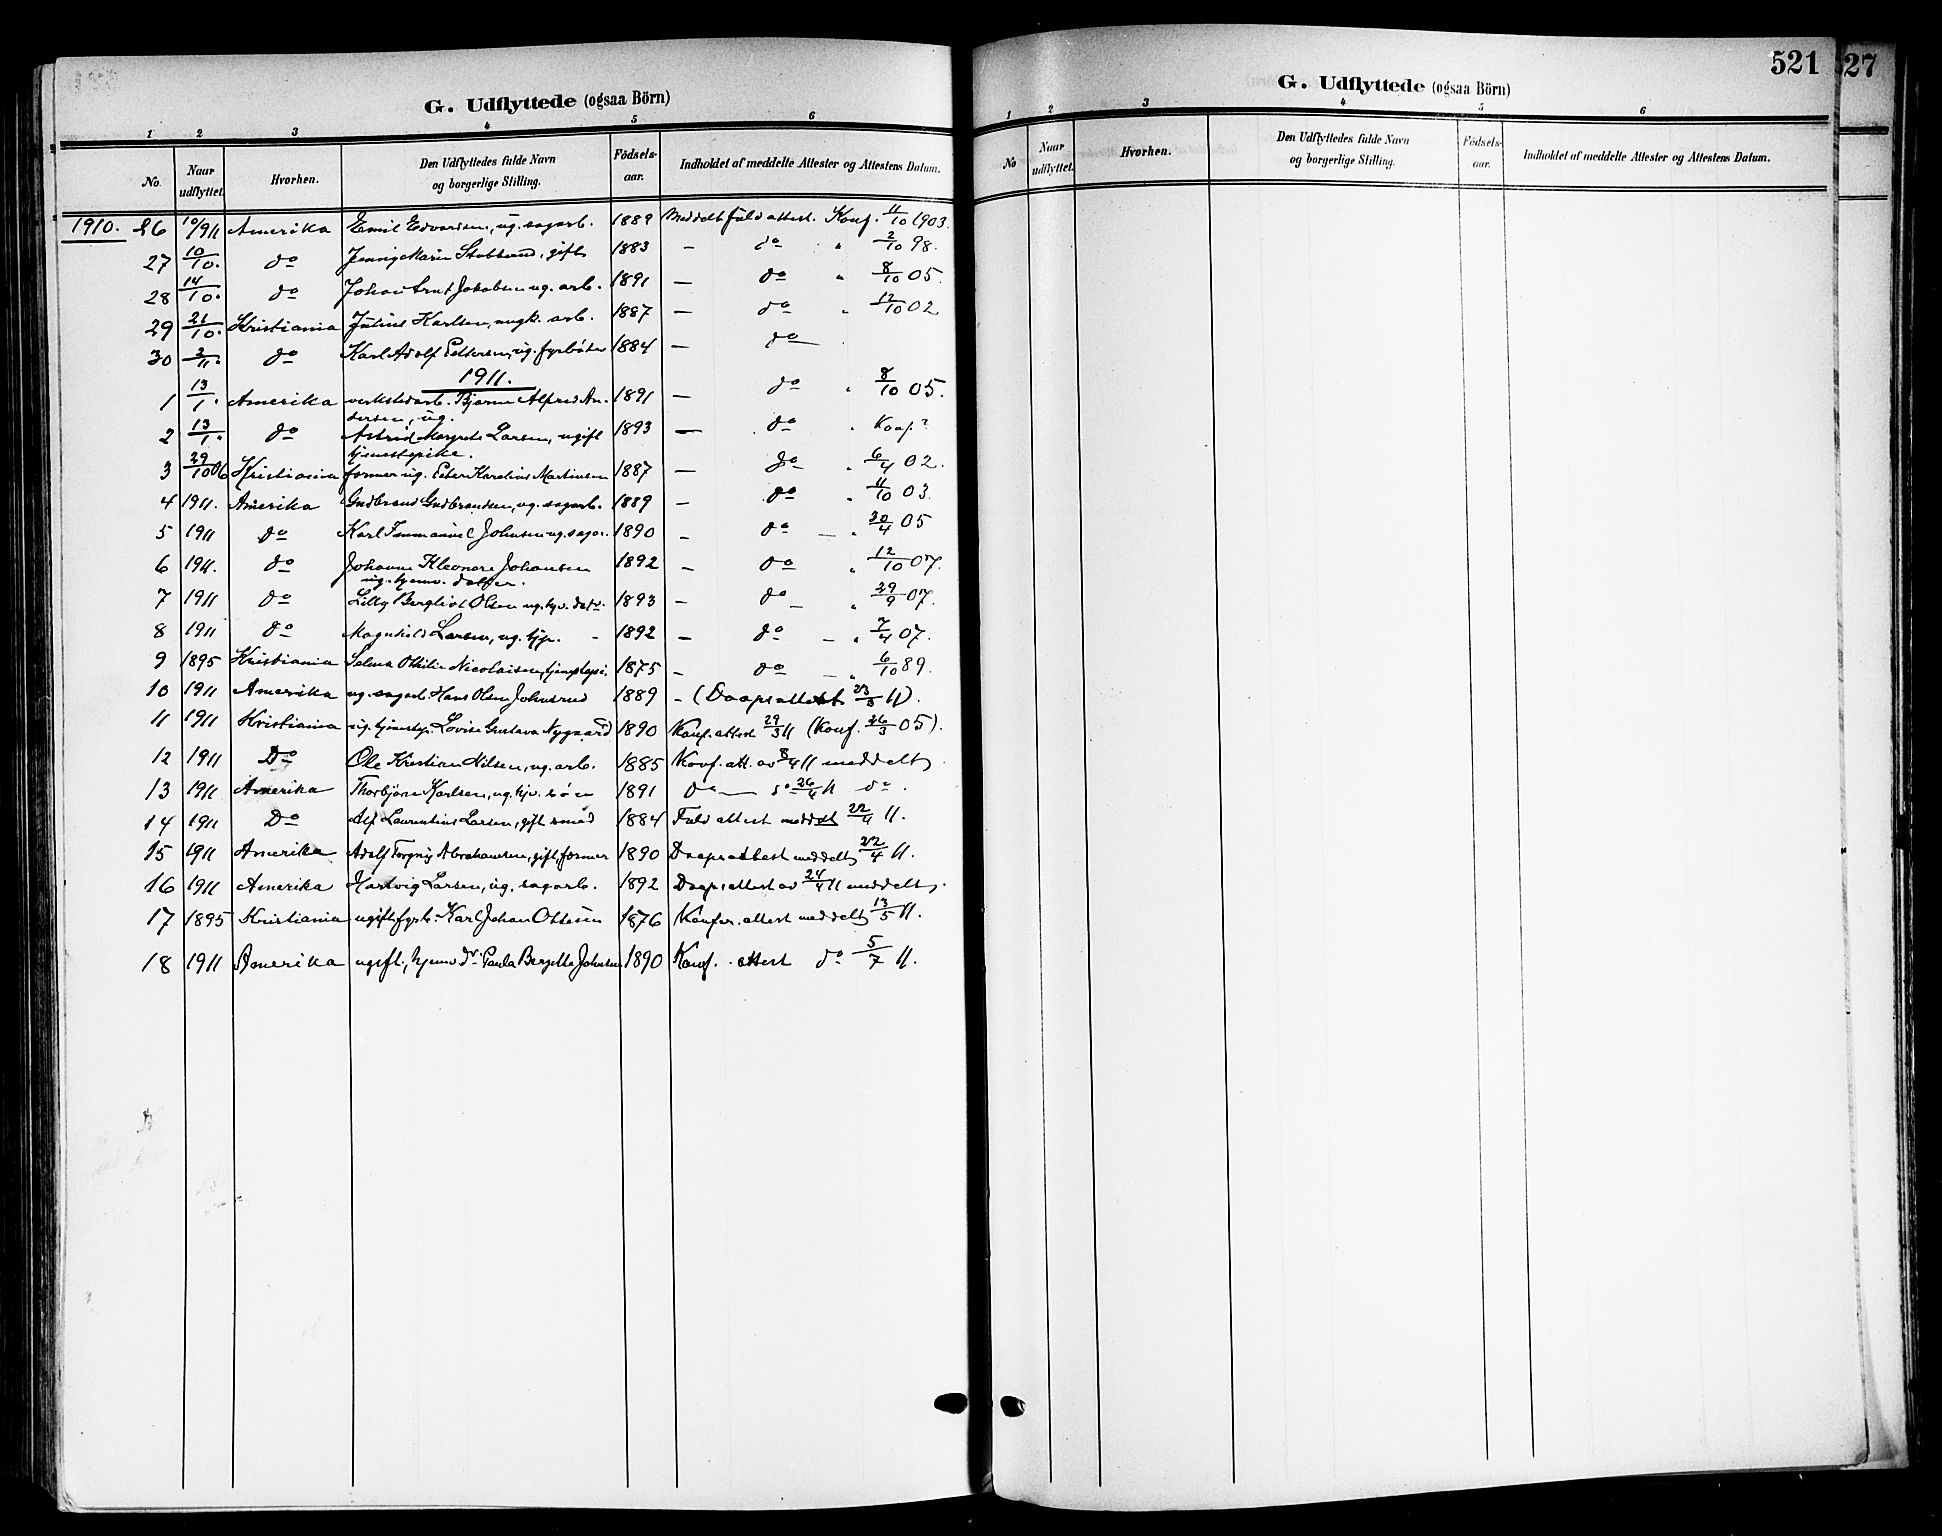 G. Udflyttede (ogsaa Börn)
1 2 3 4 5 6
No. Naar udflyttet. Hvorhen. Den Udflyttedes fulde Navn og borgerlige Stilling. Födsels-aar. Indholdet af meddelte Attester og Attestens Datum.
1910. 26 10/9 11 Amerika Emil Edvardsen, ug. sagarb. 1889 Meddelt fuld attest. Konf. 11/10 1903.
27 10/10. do Jenny Marie gift 1883 – do " 2/10 98.
28 14/10. do Johan Arnt Jakobsen ug. arb. 1891 – do " 8/10 05.
29 21/10. Kristiania Julius Karlsen, ungk. arb. 1887 – do " 12/10 02
30 2/11. do Karl Adolf Pettersen, ug. fyrböter 1884 – do
1911.
1 13/1. Amerika verkstedarb. Bjarne Alfred An- 1891 – do " 8/10 05.
dersen, ug.
2 13/1. do Astrid Margrete Larsen, ugift 1893 – do " Konf?
tjenestepike.
3 29/10 06 Kristiania former ug. Peter Karelius Martinsen 1887 – do " 6/4 02.
4 1911. Amerika Gudbrand Gudbrandsen, ug. sagarb. 1889 – do " 11/10 03.
5 1911 do Karl Immanuel Johnsen ug. 1890 – do – " 30/4 05
6 1911. do Johanne Eleonore Johansen 1892 – do " 12/10 07.
ug. hjemv. datter.
7 1911 do Lilly Bergliot Olsen ug. hjv. datr. 1893 – do – " 29/9 07.
8 1911 do Magnhild Larsen, ug. – 1892 – do – " 7/4 07.
9 1895 Kristiania Selma Othilie Nicolaisen, 1875 – do – " 6/10 89.
10 1911 Amerika ug. sagarb. Hans Olsen Johnsrud 1889 – (Daapsattest 23/3 11).
11 1911 Kristiania ug. tjenestp. Lovise Gustava Nygaard 1890 Konf. attest 29/3 11 (Konf. 26/3 05).
12 1911 Do Ole Kristian Nilsen, ug. arb. 1885 Konf. att. av 8/4 11 meddelt.
13 1911 Amerika Thorbjörn Karlsen, ug. hjv. sön 1891 do – do 26/4 11 do.
14 1911 Do Alf Laurentius Larsen, gift smed 1884 Fuld attest meddelt 22/4 11.
15 1911 Amerika Adolf Torgny Abrahamsen, gift, former 1890 Daapsattest meddelt 22/4 11.
16 1911 Amerika Hartvig Larsen, ug. sagarb. 1892 Daapsattest av 24/4 11 meddelt.
17 1895 Kristiania ugift fyrb. Karl Johan Ottesen 1876 Konfer. attest meddelt 13/5 11.
18 1911 Amerika ugift, hjemv. dr. Paula Bergitte Johnsen 1890 Konf. attest do 5/7 11.
521
27
G. Udflyttede (ogsaa Börn)
1 2 3 4 5 6
No Naar udflyttet. Hvorhen. Den Udflyttedes fulde Navn og borgerlige Stilling. Födsels-aar. Indholdet af meddelte Attester og Attestens Datum.